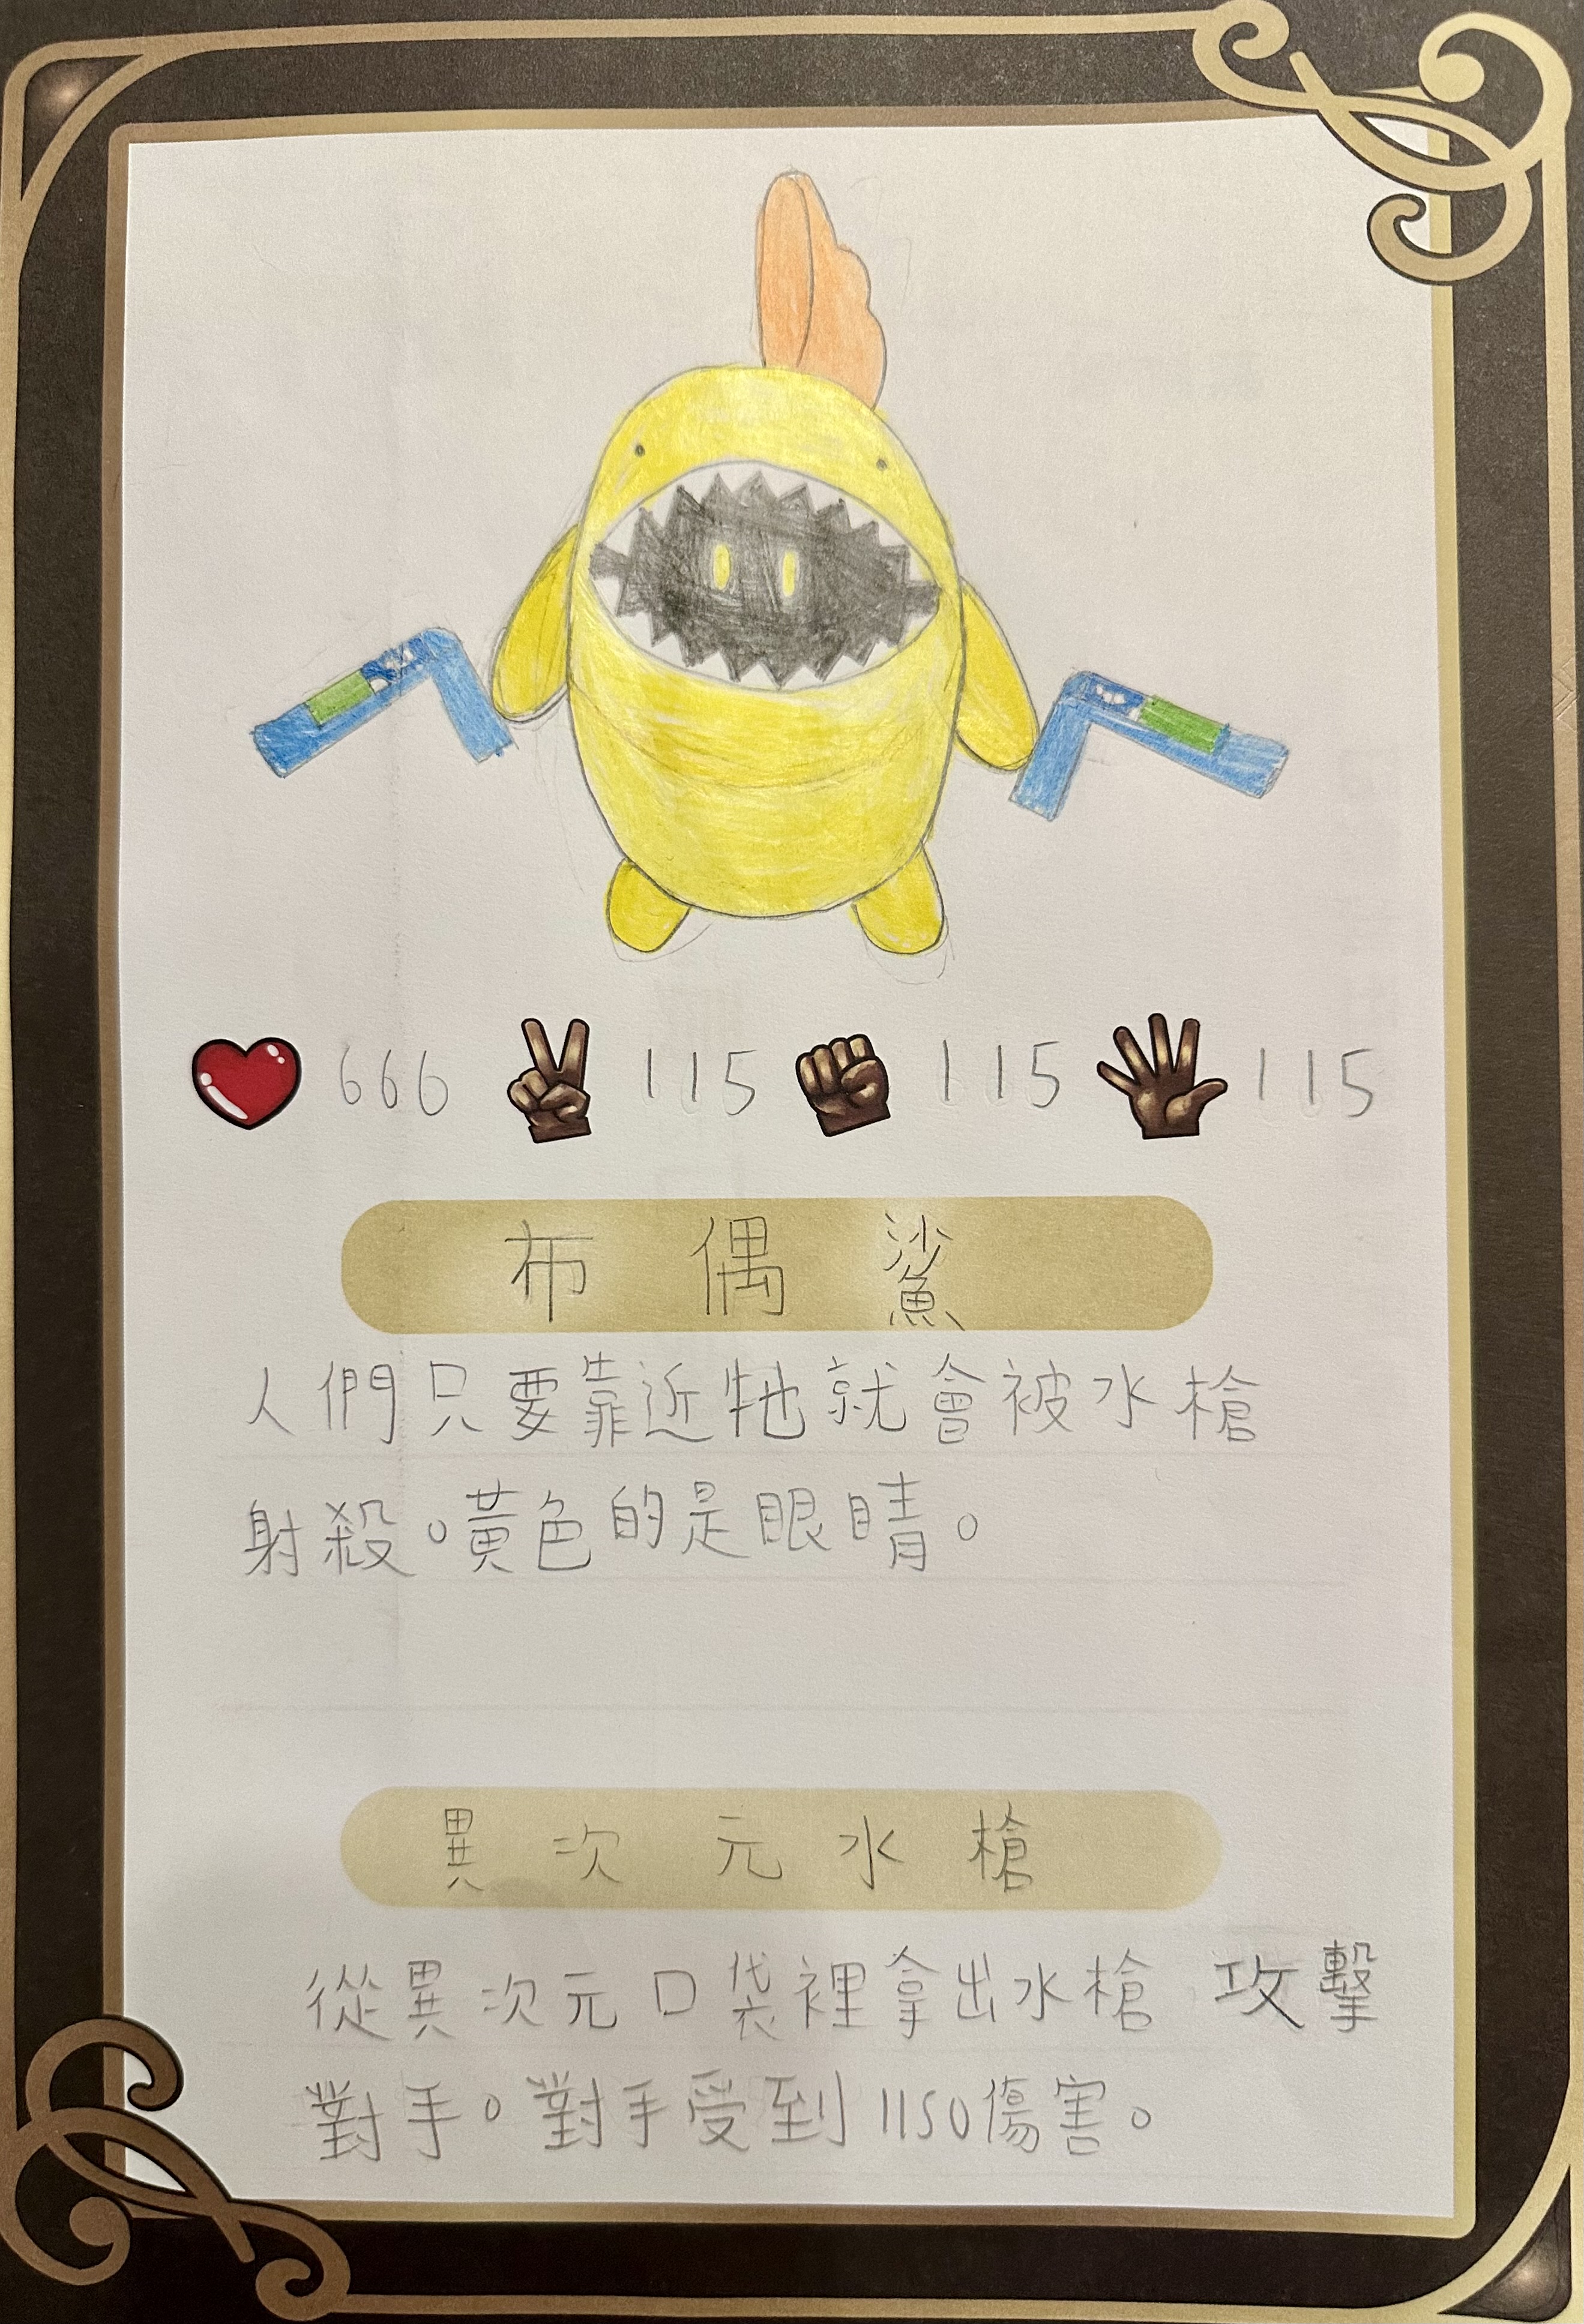 666 115 115 115
布偶鯊
人們只要靠近牠就會被水槍
射殺。黃色的是眼睛。
異次元水槍
從異次元口袋裡拿出水槍 攻擊
對手。對手受到1150傷害。